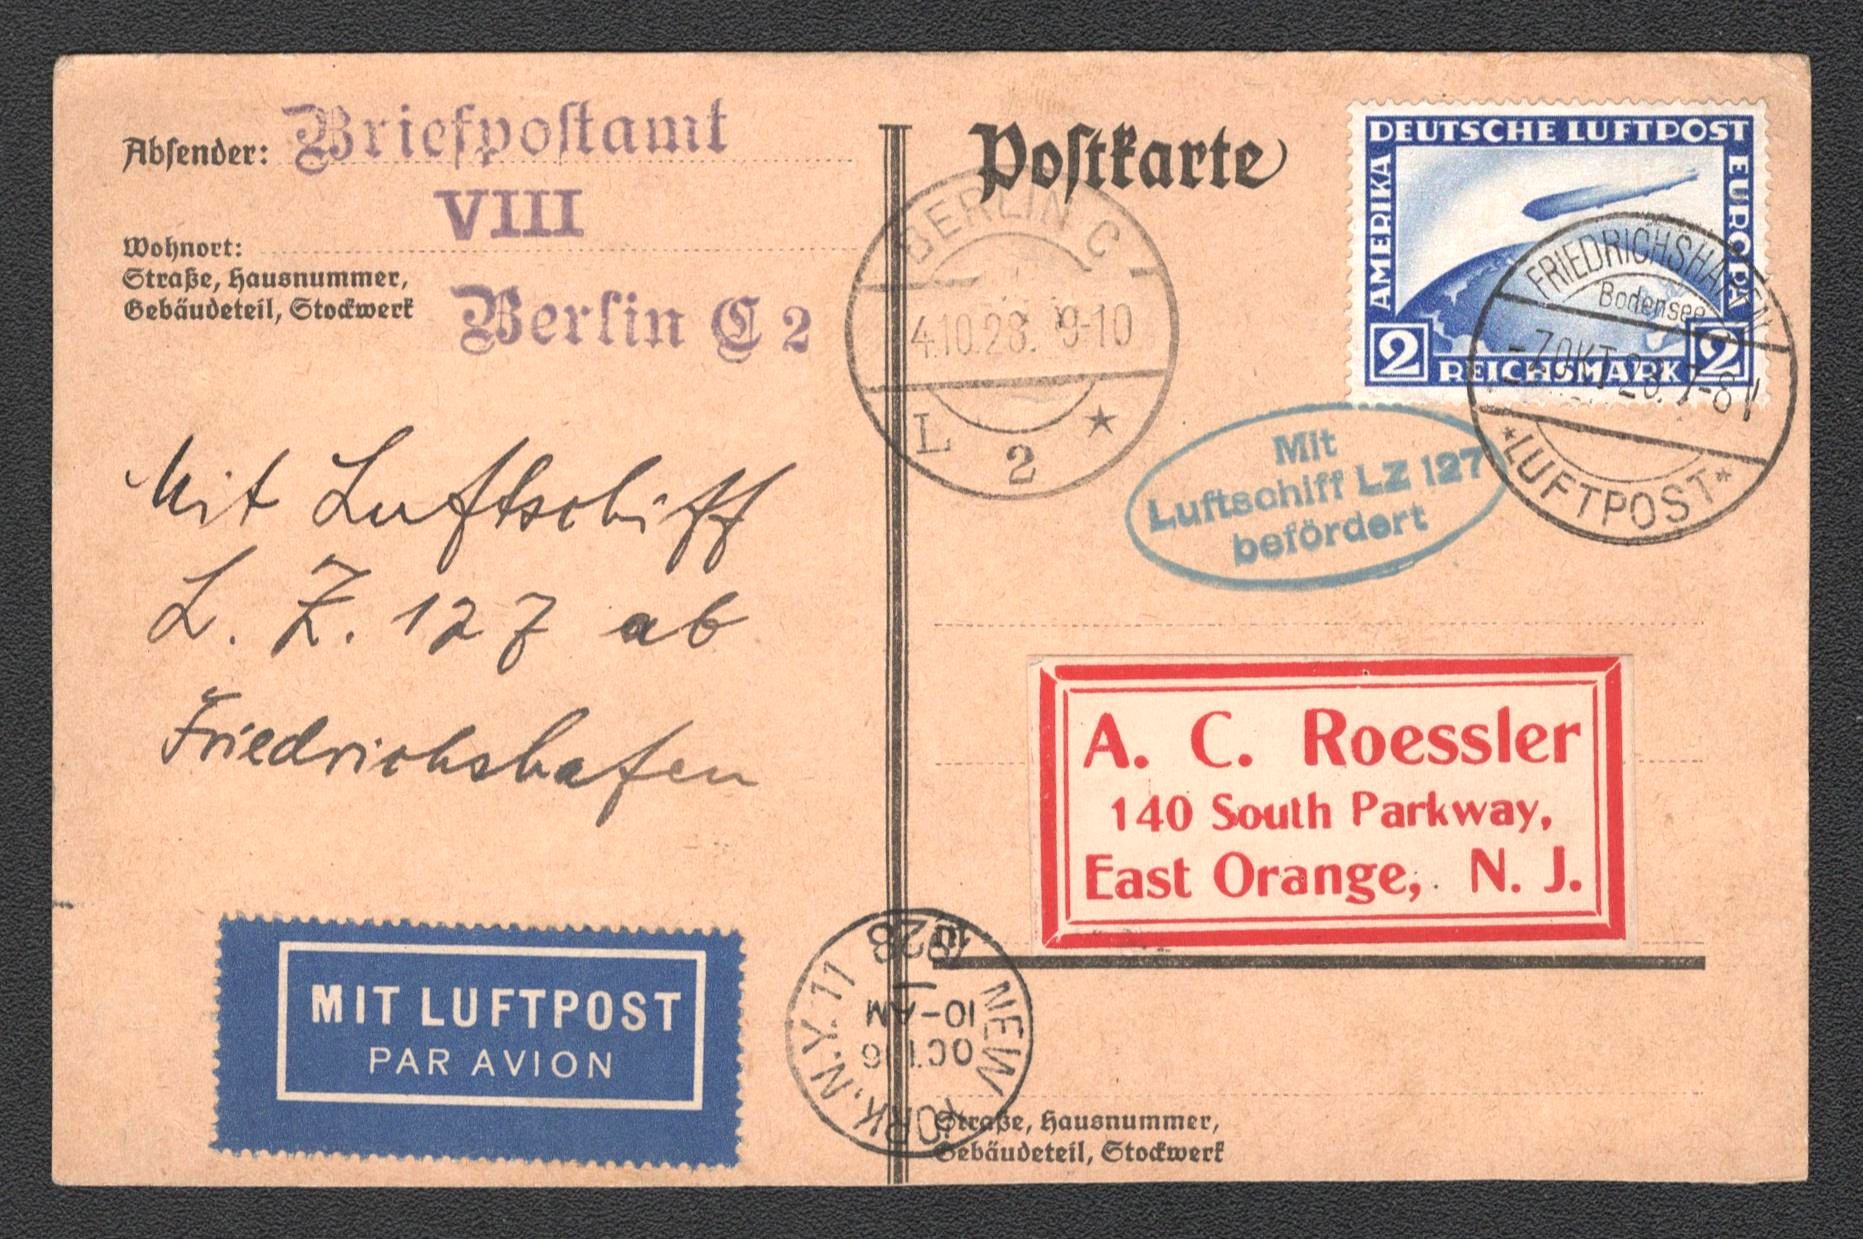 Absender: Briefpostamt
VIII
Wohnort:
Straße, Hausnummer,
Gebäudeteil, Stockwerk
Berlin C 2
Mit Luftschiff
L. Z. 127 ab
Friedrichshafen
MIT LUFTPOST
PAR AVION
Postkarte
BERLIN C
4.10.28. 9-10
L 2 ★
DEUTSCHE LUFTPOST
AMERIKA
EUROPA
2 REICHSMARK 2
FRIEDRICHSHAFEN
Bodensee
-7.OKT.28. 7-8 V
*LUFTPOST*
Mit
Luftschiff LZ 127
befördert
A. C. Roessler
140 South Parkway,
East Orange, N. J.
NEW YORK, N.Y. 11
OCT 16
10-AM
1928
Straße, Hausnummer,
Gebäudeteil, Stockwerk